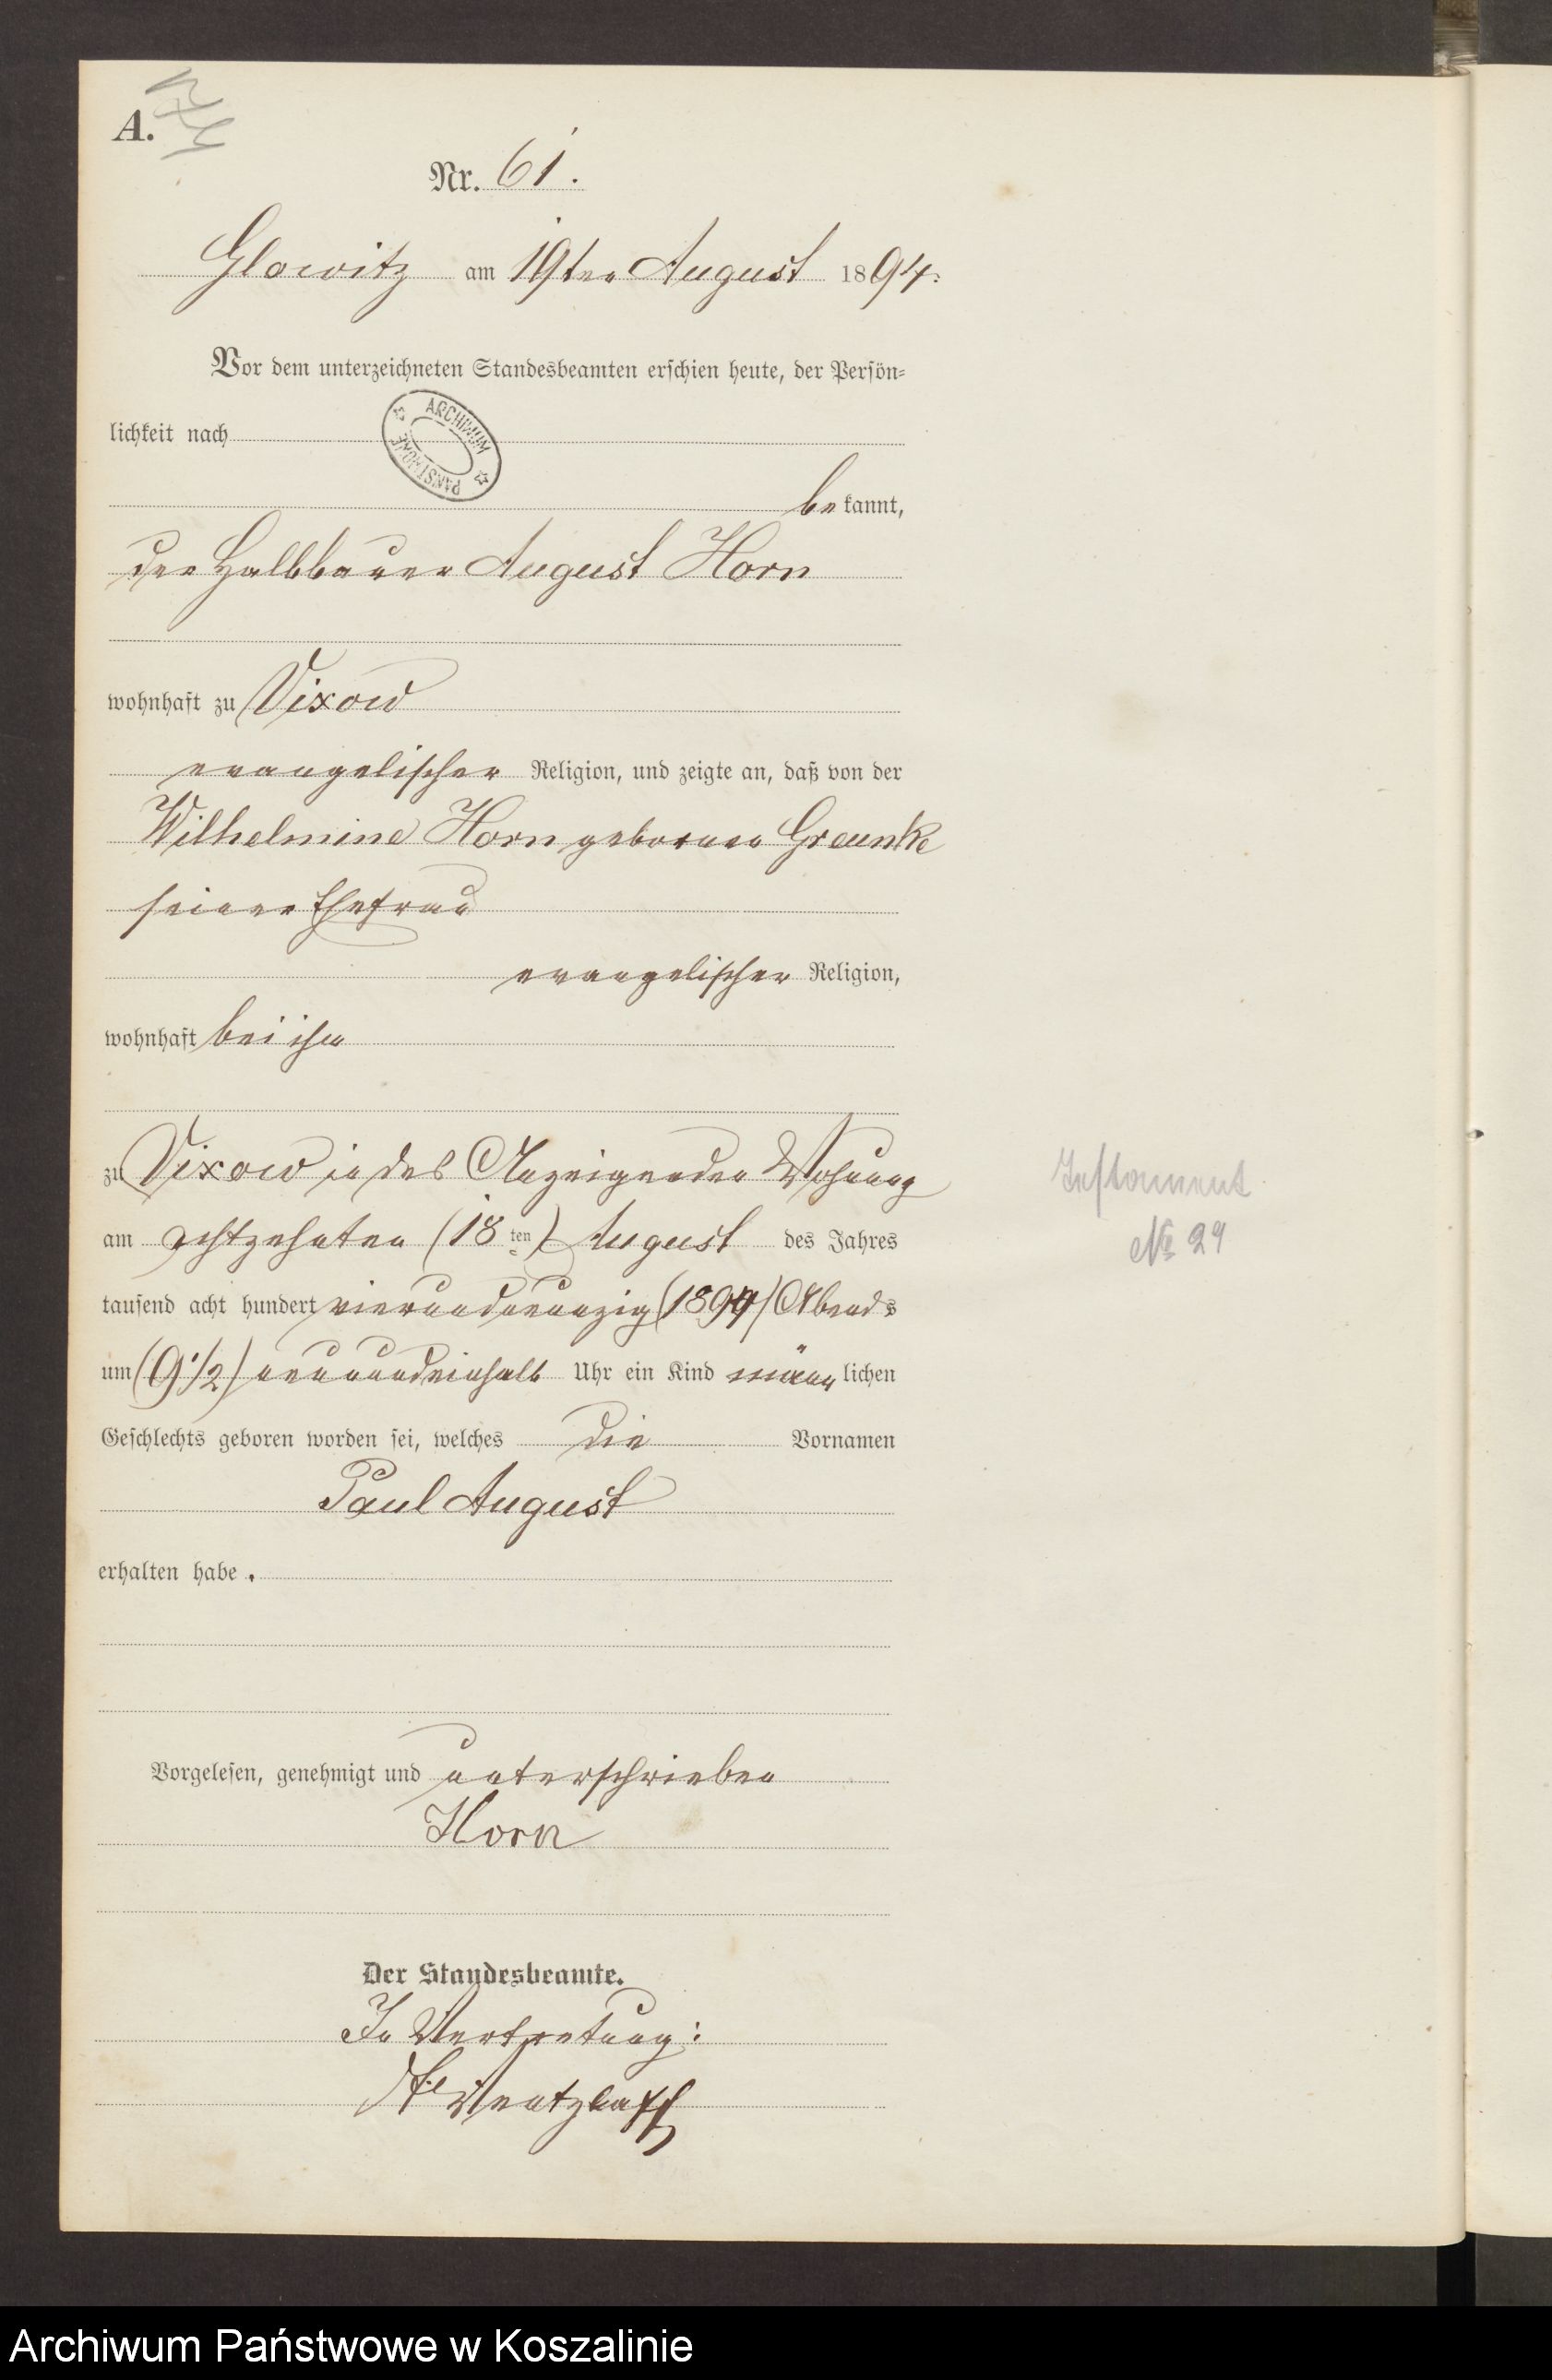 A.
Nr. 61.
Glowitz am 19ten August 1894.
Vor dem unterzeichneten Standesbeamten erschien heute, der Persön-
lichkeit nach
ARCHIWUM PAŃSTWOWE
bekannt,
der Halbbauer August Horn
wohnhaft zu Vixow
evangelischer Religion, und zeigte an, daß von der
Wilhelmine Horn geborner Greunke
seiner Ehefrau
evangelischer Religion,
wohnhaft bei ihm
zu Vixow in des Anzeigenden Wohnung
am achtzehnten (18ten) August des Jahres
tausend acht hundert vierundneunzig (1894) Abends
um (9 1/2) neunundeinhalb Uhr ein Kind männlichen
Geschlechts geboren worden sei, welches die Vornamen
Paul August
erhalten habe.
Testament
№ 29
Vorgelesen, genehmigt und unterschrieben
Horn
Der Standesbeamte.
In Vertretung:
Wentzlaff
Archiwum Państwowe w Koszalinie